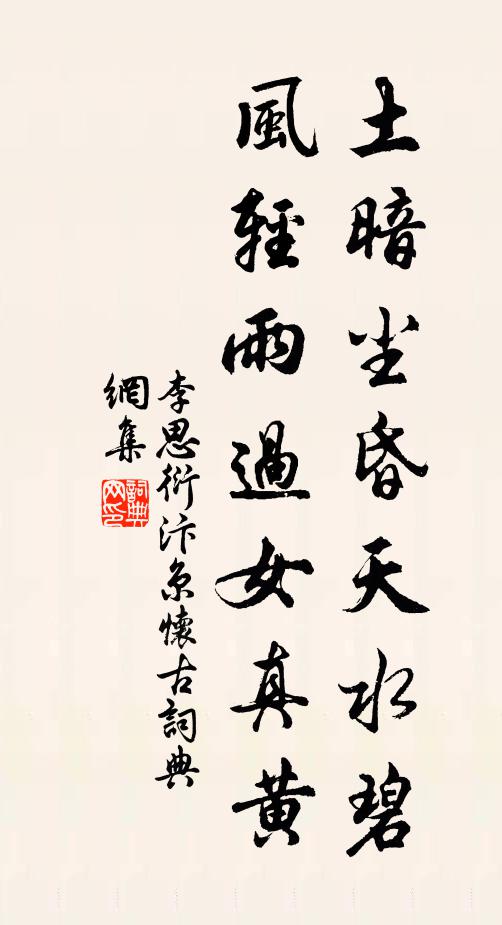 土暗尘昏天水碧
風輕雨過女真黄
李思衍汴京懷古詞典
網集
詞典
网印